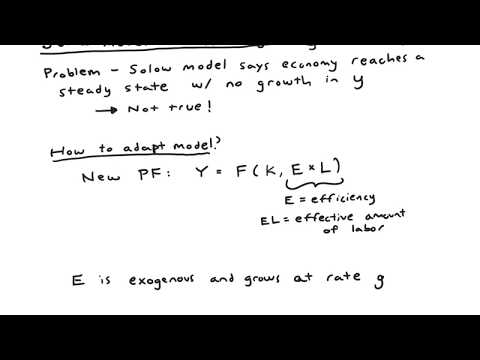 Problem - Solow model says economy reaches a
steady state w/ no growth in y
→ Not true!
How to adapt model?
New PF: Y = F(K, E*L)
E = efficiency
EL = effective amount
of labor
E is exogenous and grows at rate g